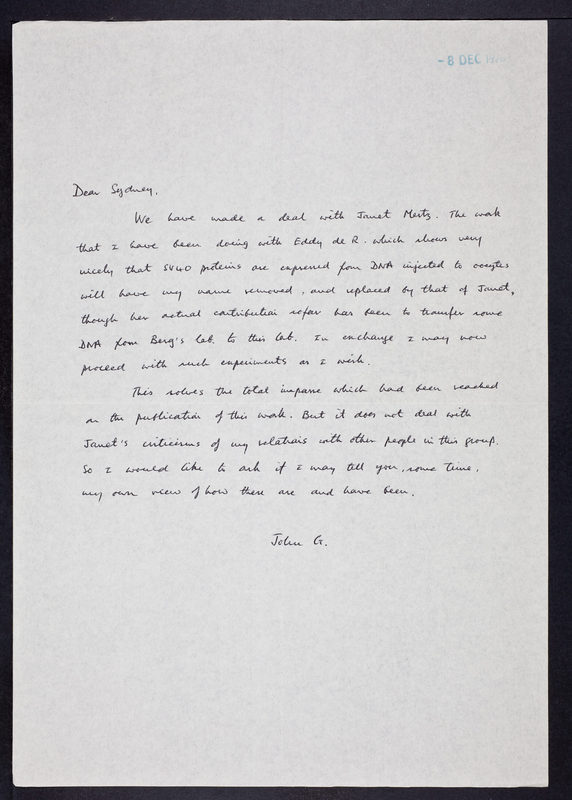 - 8 DEC
Dear Sydney,
We have made a deal with Janet Mertz. The work
that I have been doing with Eddy de R. which shows very
nicely that SV40 proteins are expressed from DNA injected to oocytes
will have my name removed, and replaced by that of Janet,
though her actual contribution sofar has been to transfer some
DNA from Berg's lab. to this lab. In exchange I may now
proceed with such experiments as I wish.
This solves the total impasse which had been reached
on the publication of this work. But it does not deal with
Janet's criticisms of my relations with other people in this group.
So I would like to ask if I may tell you, some time,
my own view of how these are and have been.
John G.